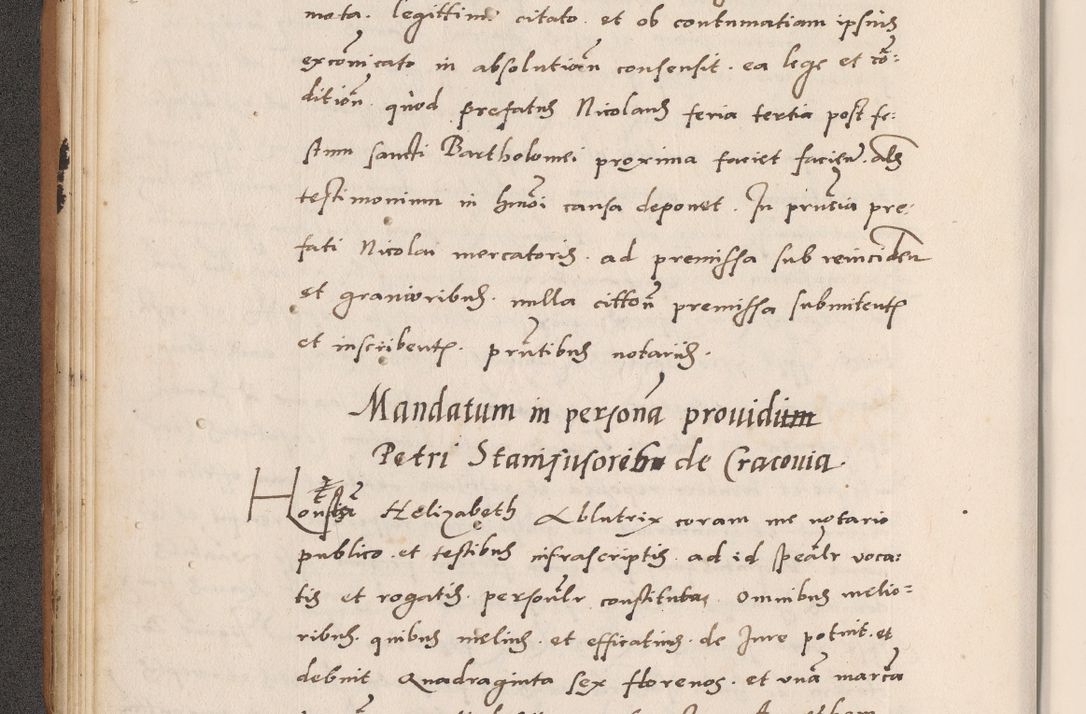 mota. legittime citato. et ob contumatiam ipsius
excōicato in absolutiōn consensit. ea lege et cō:
ditiōn. quod prefatus Nicolaus feria tertia post fe:
stum sancti Bartholomei proxima faciet faciend. als
testimonium in hmōi causa deponet. In prntia pre:
fati Nicolai mercatoris. ad premissa sub reinciden
et grauioribus. nulla cittōn premissa submitent
et inscribent. prntibus notariis.
Mandatum in personā prouidum
Petri Stanifusoris de Cracouia.
Honesta Helizabeth Ablutrix coram me notario
publico et testibus infrascriptis. ad id speālr voca:
tis et rogatis. personlr constituta. Omnibus melio=
ribus. quibus melius. et efficatius. de Iure potuit. et
debuit Quadraginta sex florenos. et unā marcā